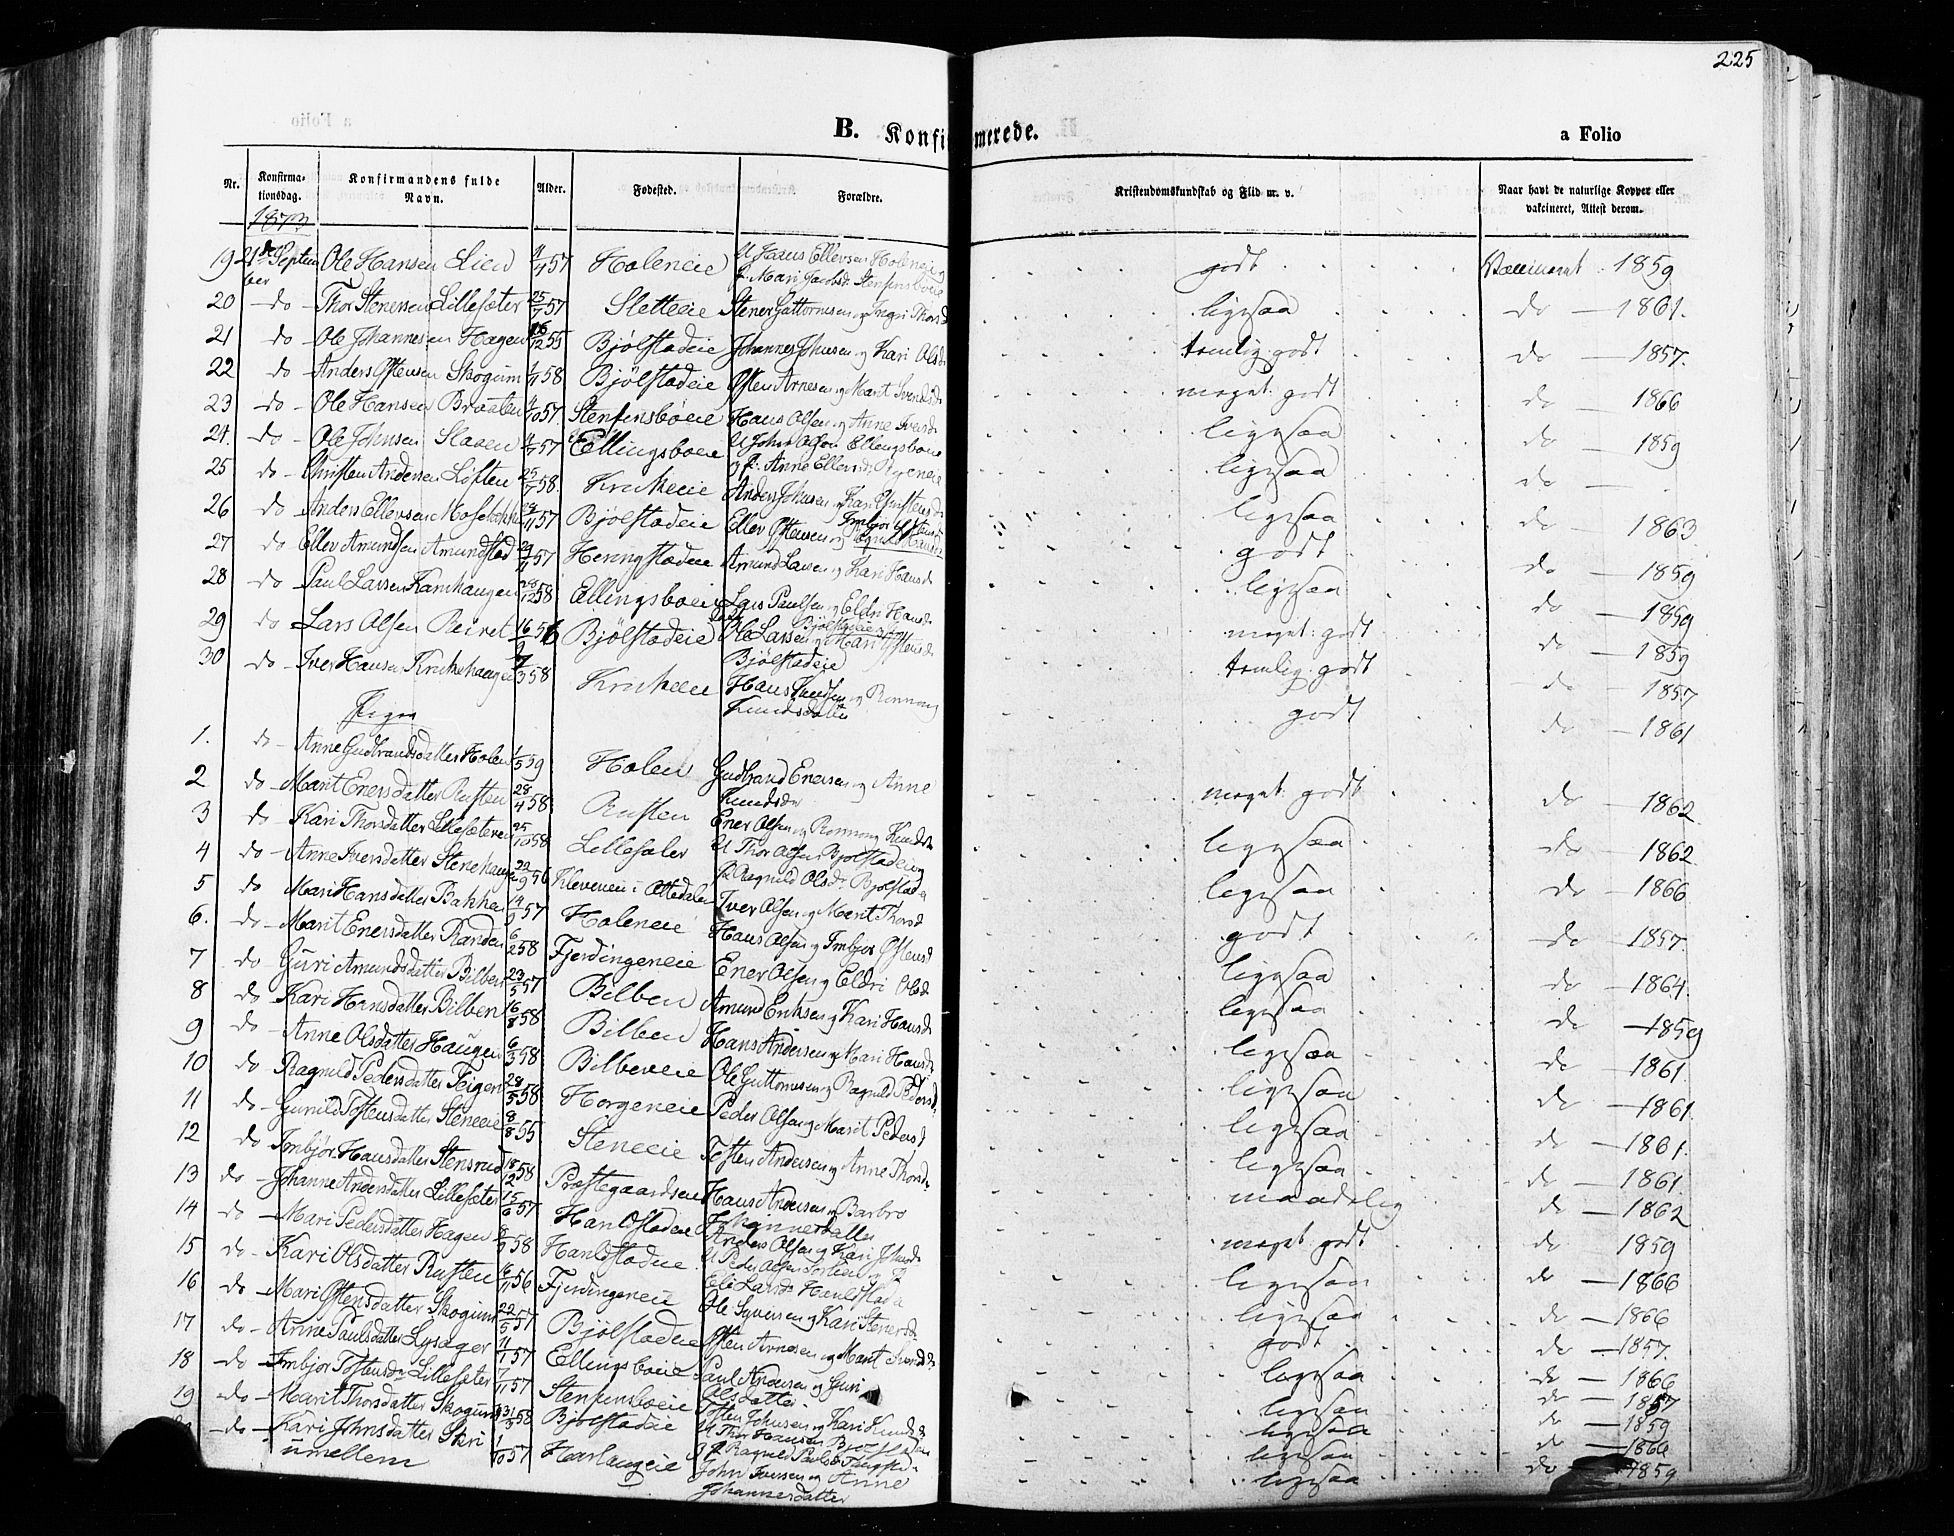 225
B. Konfirmerede.
a Folio
Nr. Konfirmationsdag. Konfirmandens fulde Navn. Alder. Fødested. Forældre. Kristendomskundskab og Flid m. v. Naar havt de naturlige Kopper eller vakcineret, Attest derom.
1873
19 21de September Ole Hansen Lien 57 Holeneie U. Hans Ellevsen Holeneie og P. Mari Jacobsd. godt Vaccineret 1859
20 do Thor Stenersen Lillesæter 25/7 57 Sletteeie Stener Guttormsen og Ingri Thorsd ligesaa do 1861.
21 do Ole Johannesen Hagen 16/12 55 Bjølstadeie Johannes Johnsen og Kari Olsd temlig godt do 1857.
22 do Anders Ostensen Skogum 58 Bjølstadeie Osten Arnesen og Marit Svendsd meget godt do 1866
23 do Ole Hansen Braaten 57 Stenfinsbøeie Hans Olsen og Anne Iversd ligesaa do 1859
24. do Ole Johnsen Slaaen 57 Ellingsboeie U. John Olsen Ellingsboeie og P. Anne Ellevsd. ligesaa do
25 do Christen Andersen Løften 25/7 58. Krukeeie Anders Johnsen og Kari Christensd ligesaa do 1863
26 do Anders Ellevsen 57 Bjølstadeie Ellev Ostensen og Imbjør godt do 1859
27 do Ellev Amundsen Amundstad 57 Heringstadeie Amund Larsen og Kari Hansd ligesaa do 1859
28 do Paul Larsen Kamhaugen 28/12 58 Ellingsboeie Lars Paulsen og Eldri Hansd Bjølstadeie meget godt do 1859
29 do Lars Olsen Reiret 16/9 56 Bjølstadeie Ole Larsen og Mari Ostensd Bjølstadeie temlig godt do 1857
30 do Iver Hansen Krukehaugen 58 Krukeeie Hans Knudsen og Ronnoug Knudsdatter godt do 1861
Piger
1. do Anne Gudbrandsdatter Holen 1/5 59 Holen Gudbrand Enersen og Anne Knudsdr meget godt do 1862
2 do Marit Enersdatter Rusten 28/4 58 Rusten Ener Olsen og Ronnoug Knudsd ligesaa do 1862
3 do Kari Thorsdatter Lillesæteren 25/10 58 Lillesæter U. Thor Olsen Bjølstadeie og P. Ragnild Olsd. Bjølstada ligesaa do 1866
4 do Anne Iversdatter Stenehaugen 22/9 56 Kleveneie i Ottedalen Iver Olsen og Marit Thorsd godt do 1857.
5 do Mari Hansdatter Bakken 14/9 57 Holeneie Hans Olsen og Imbjør Ostensd ligesaa do 1864.
6. do Marit Enersdatter Randen 6/2 58 Fjerdingeneie Ener Olsen og Eldri Olsd ligesaa do 1859
7 do Guri Amundsdatter Bilben 23/5 57 Bilben Amund Eriksen og Kari Hansd ligesaa do 1861
8 do Kari Hansdatter Bilben 16/8 58 Bilben Hans Andersen og Kari Hansd ligesaa do 1861.
9 do Anne Olsdatter Haugen 6/3 58 Bilbeneie Ole Guttormsen og Ragnild Pedersd. ligesaa do 1861.
10 do Ragnild Pedersdatter Teigen 28/5 58 Horgeneie Peder Olsen og Marit Pedersd ligesaa do 1861.
11 do Gunild Tostensdatter Steneeie 8/8 55 Steneeie Tosten Andersen og Anne Thorsd. maadelig do 1862
12 do Imbjør Hansdatter Stensrud 18/12 58 Præstegaardseie Hans Andersen og Barbro Johannesdatter meget godt do 1859
13 do Johanne Andersdatter Lillesæter 15/6 57 Hanlstadeie Anders Olsen og Kari Johnsd ligesaa do 1866
14 do Mari Pedersdatter Hagen 58 Hanlstadeie U. Peder Olsen og P. Eli Larsd. ligesaa do 1866
15 do Kari Olsdatter Rusten 16/11 56 Fjerdingeneie Ole Syversen og Kari Stenersd godt do 1857.
16 do Mari Ostensdatter Skogum 22/5 57 Bjølstadeie Osten Arnesen og Marit Svendsd ligesaa do 1866
17 do Anne Paulsdatter Lysager 11/1 57 Ellingsboeie Paul Andersen og Guri Olsdatter ligesaa do 1857
18 do Imbjør Tostensdr Lillesæter 7/11 57 Stenfinsboeie Tosten Johnsen og Kari Knudsd ligesaa do 1859
19 do Marit Thorsdatter Skogum 31/3 58 Bjølstadeie U. Thor Hansen og P. Ragnild Paulsd. ligesaa do 1866
do Kari Johnsdatter Skri imellem 1/10 57 Harlaugeie John Iversen og Anne Johannesdatter ligesaa do 1859